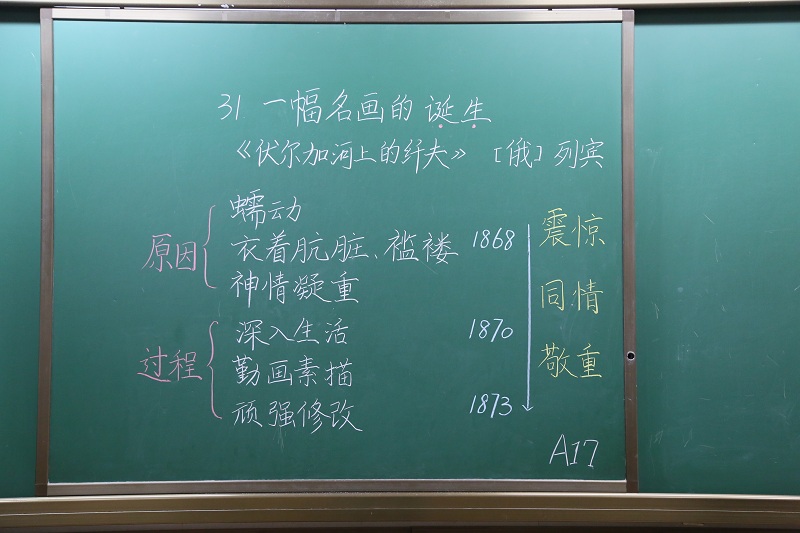 31 一幅名画的诞生
《伏尔加河上的纤夫》 [俄] 列宾
原因
蠕动
衣着肮脏、褴褛
神情凝重
过程
深入生活
勤画素描
顽强修改
1868
1870
1873
震惊
同情
敬重
A17